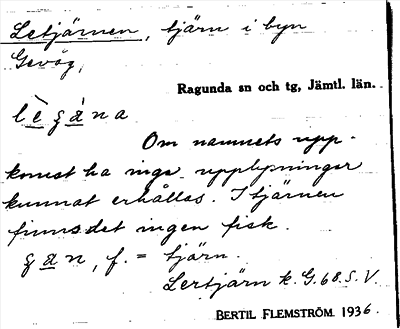 Letjärnen, tjärn i byn
Gevåg,
Ragunda sn och tg, Jämtl. län.
Om namnets upp-
komst ha inga upplysningar
kunnat erhållas. I tjärnen
finns det ingen fisk.
f. = tjärn.
Lertjärn k. G. 68. S. V.
BERTIL FLEMSTRÖM 1936.